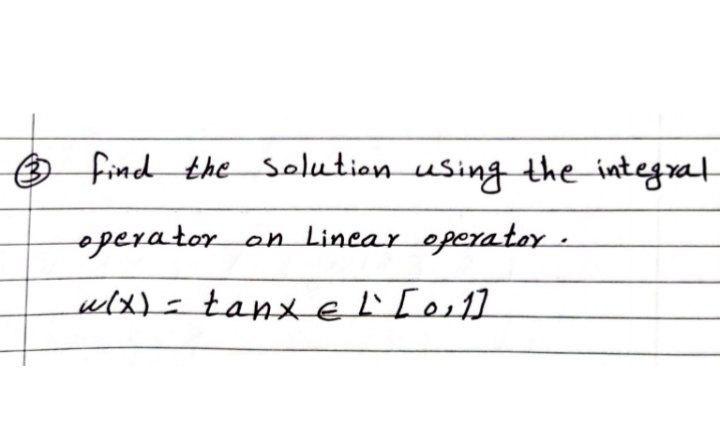 ③ find the solution using the integral
operator on Linear operator.
u(x) = tanx ∈ L' [0,1]